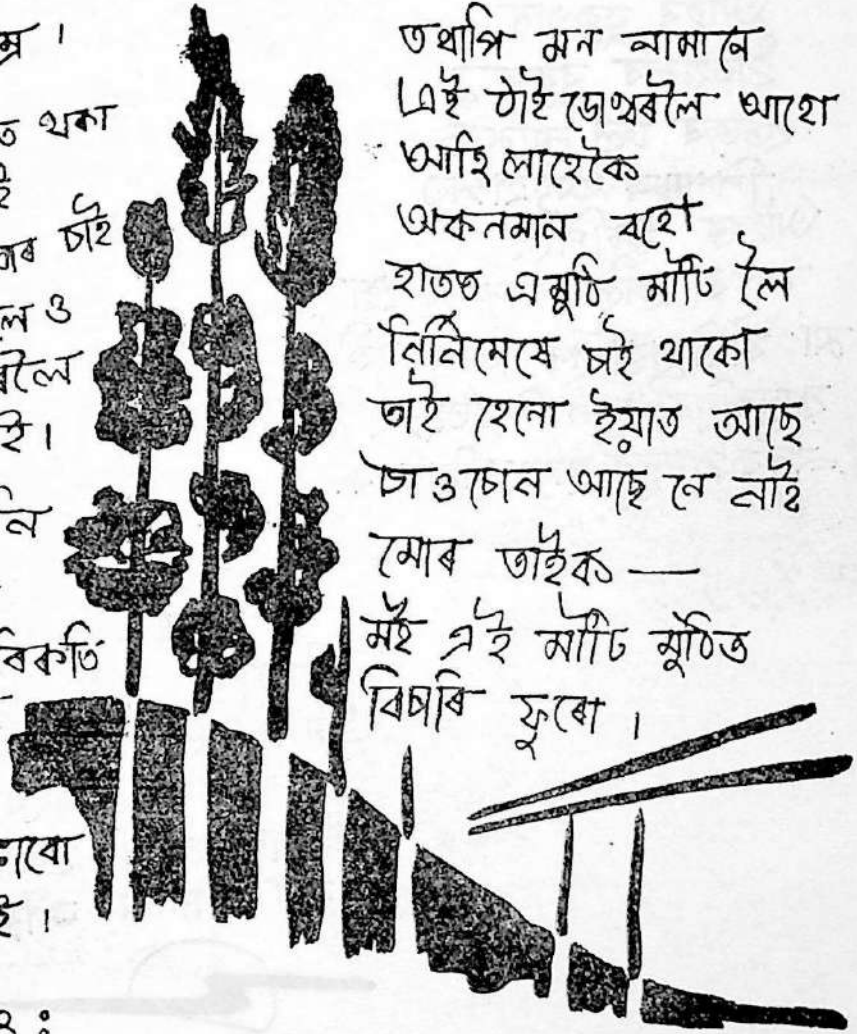 ত থকা
চাই
ল ও
ৰলৈ
ই।
নি
ই।
তথাপি মন নামানে
এই ঠাই ডোখৰলৈ আহো
আহি লাহেকৈ
অকনমান বহো
হাতত এমুঠি মাটি লৈ
নিৰ্নিমেষে চাই থাকো
তাই হেনো ইয়াত আছে
চাওচোন আছে নে নাই
মোৰ তাইক —
মই এই মাটি মুঠিত
বিচাৰি ফুৰো ।